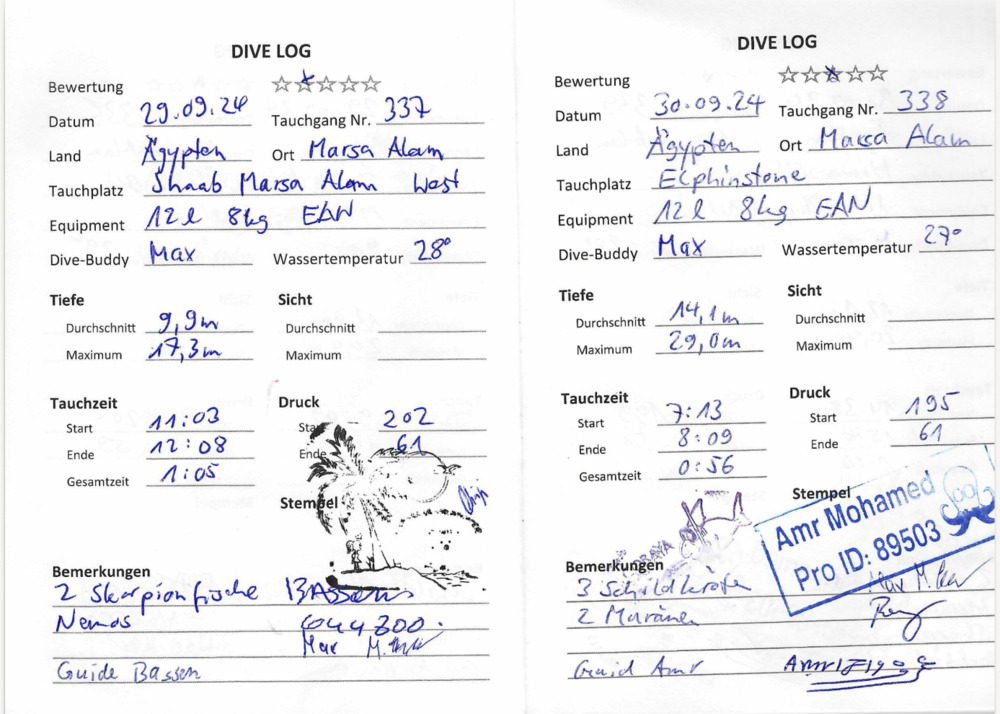 DIVE LOG
Bewertung
Datum 29.09.24 Tauchgang Nr. 337
Land Ägypten Ort Marsa Alam
Tauchplatz Shaab Marsa Alam West
Equipment 12 l 8kg EAN
Dive-Buddy Max Wassertemperatur 28°
Tiefe Sicht
Durchschnitt 9,9m Durchschnitt
Maximum 17,3m Maximum
Tauchzeit Druck
Start 11:03 Start 202
Ende 12:08 Ende 61
Gesamtzeit 1:05
Stempel
Bemerkungen
2 Skorpionfische Bassem
Nemos
Max M.
Guide Bassem
DIVE LOG
Bewertung
Datum 30.09.24 Tauchgang Nr. 338
Land Ägypten Ort Marsa Alam
Tauchplatz Elphinstone
Equipment 12 l 8kg EAN
Dive-Buddy Max Wassertemperatur 27°
Tiefe Sicht
Durchschnitt 14,1m Durchschnitt
Maximum 29,0m Maximum
Tauchzeit Druck
Start 7:13 Start 195
Ende 8:09 Ende 61
Gesamtzeit 0:56
Stempel
Amr Mohamed
Pro ID: 89503
Bemerkungen
3 Schildkröten Max M.
2 Muränen
Guid Amr